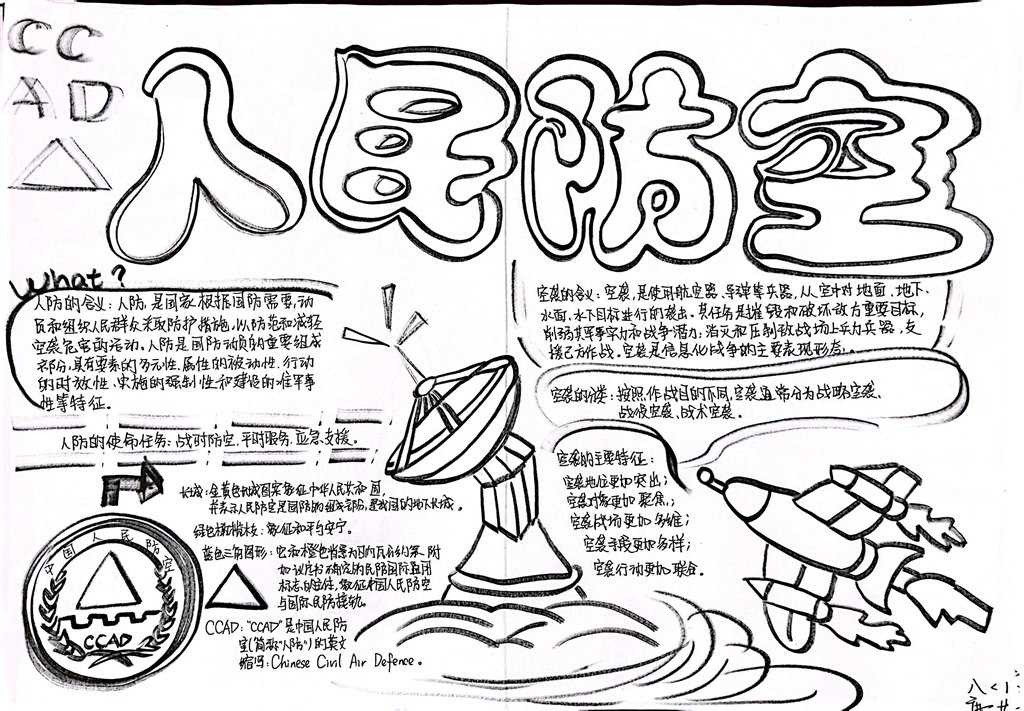 CC
AD
人民防空
What?
人防的含义：人防，是国家根据国防需要，动
员和组织人民群众采取防护措施，以防范和减轻
空袭危害的活动。人防是国防动员的重要组成
部分，具有要素的多元性、属性的被动性、行动
的时效性、实施的强制性和建设的准军事
性等特征。
人防的使命任务：战时防空，平时服务，应急支援。
长城：金黄色城图案象征中华人民共和国，
并表示人民防空是国防的组成部份，是我国的地下长城。
绿色橄榄枝：象征和平与安宁。
蓝色三角图形：它和橙色背景为日内瓦公约第一附
加议定书确定的民防国际通用
标志的主体，象征中国人民防空
与国际民防接轨。
CCAD："CCAD"是中国人民防
空(简称"人防")的英文
缩写：Chinese Civil Air Defence。
中国人民防空
CCAD
空袭的含义：空袭，是使用航空器、导弹等兵器，从空中对地面、地下、
水面、水下目标进行的袭击。其任务是摧毁和破坏敌方重要目标，
削弱其军事实力和战争潜力；消灭和压制敌战场上兵力兵器，支
援己方作战。空袭是信息化战争的主要表现形态。
空袭的分类：按照作战目的不同，空袭通常分为战略空袭、
战役空袭、战术空袭。
空袭的主要特征：
空袭地位更加突出；
空袭对象更加聚焦；
空袭战场更加多维；
空袭手段更加多样；
空袭行动更加联合。